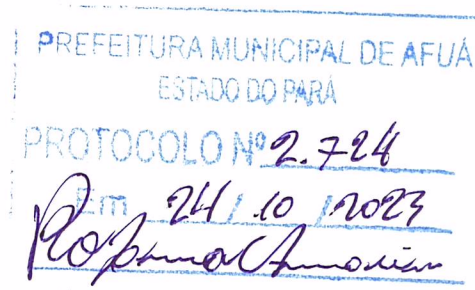 PREFEITURA MUNICIPAL DE AFUÁ
ESTADO DO PARÁ
PROTOCOLO Nº 2.724
Em 24 / 10 / 2023